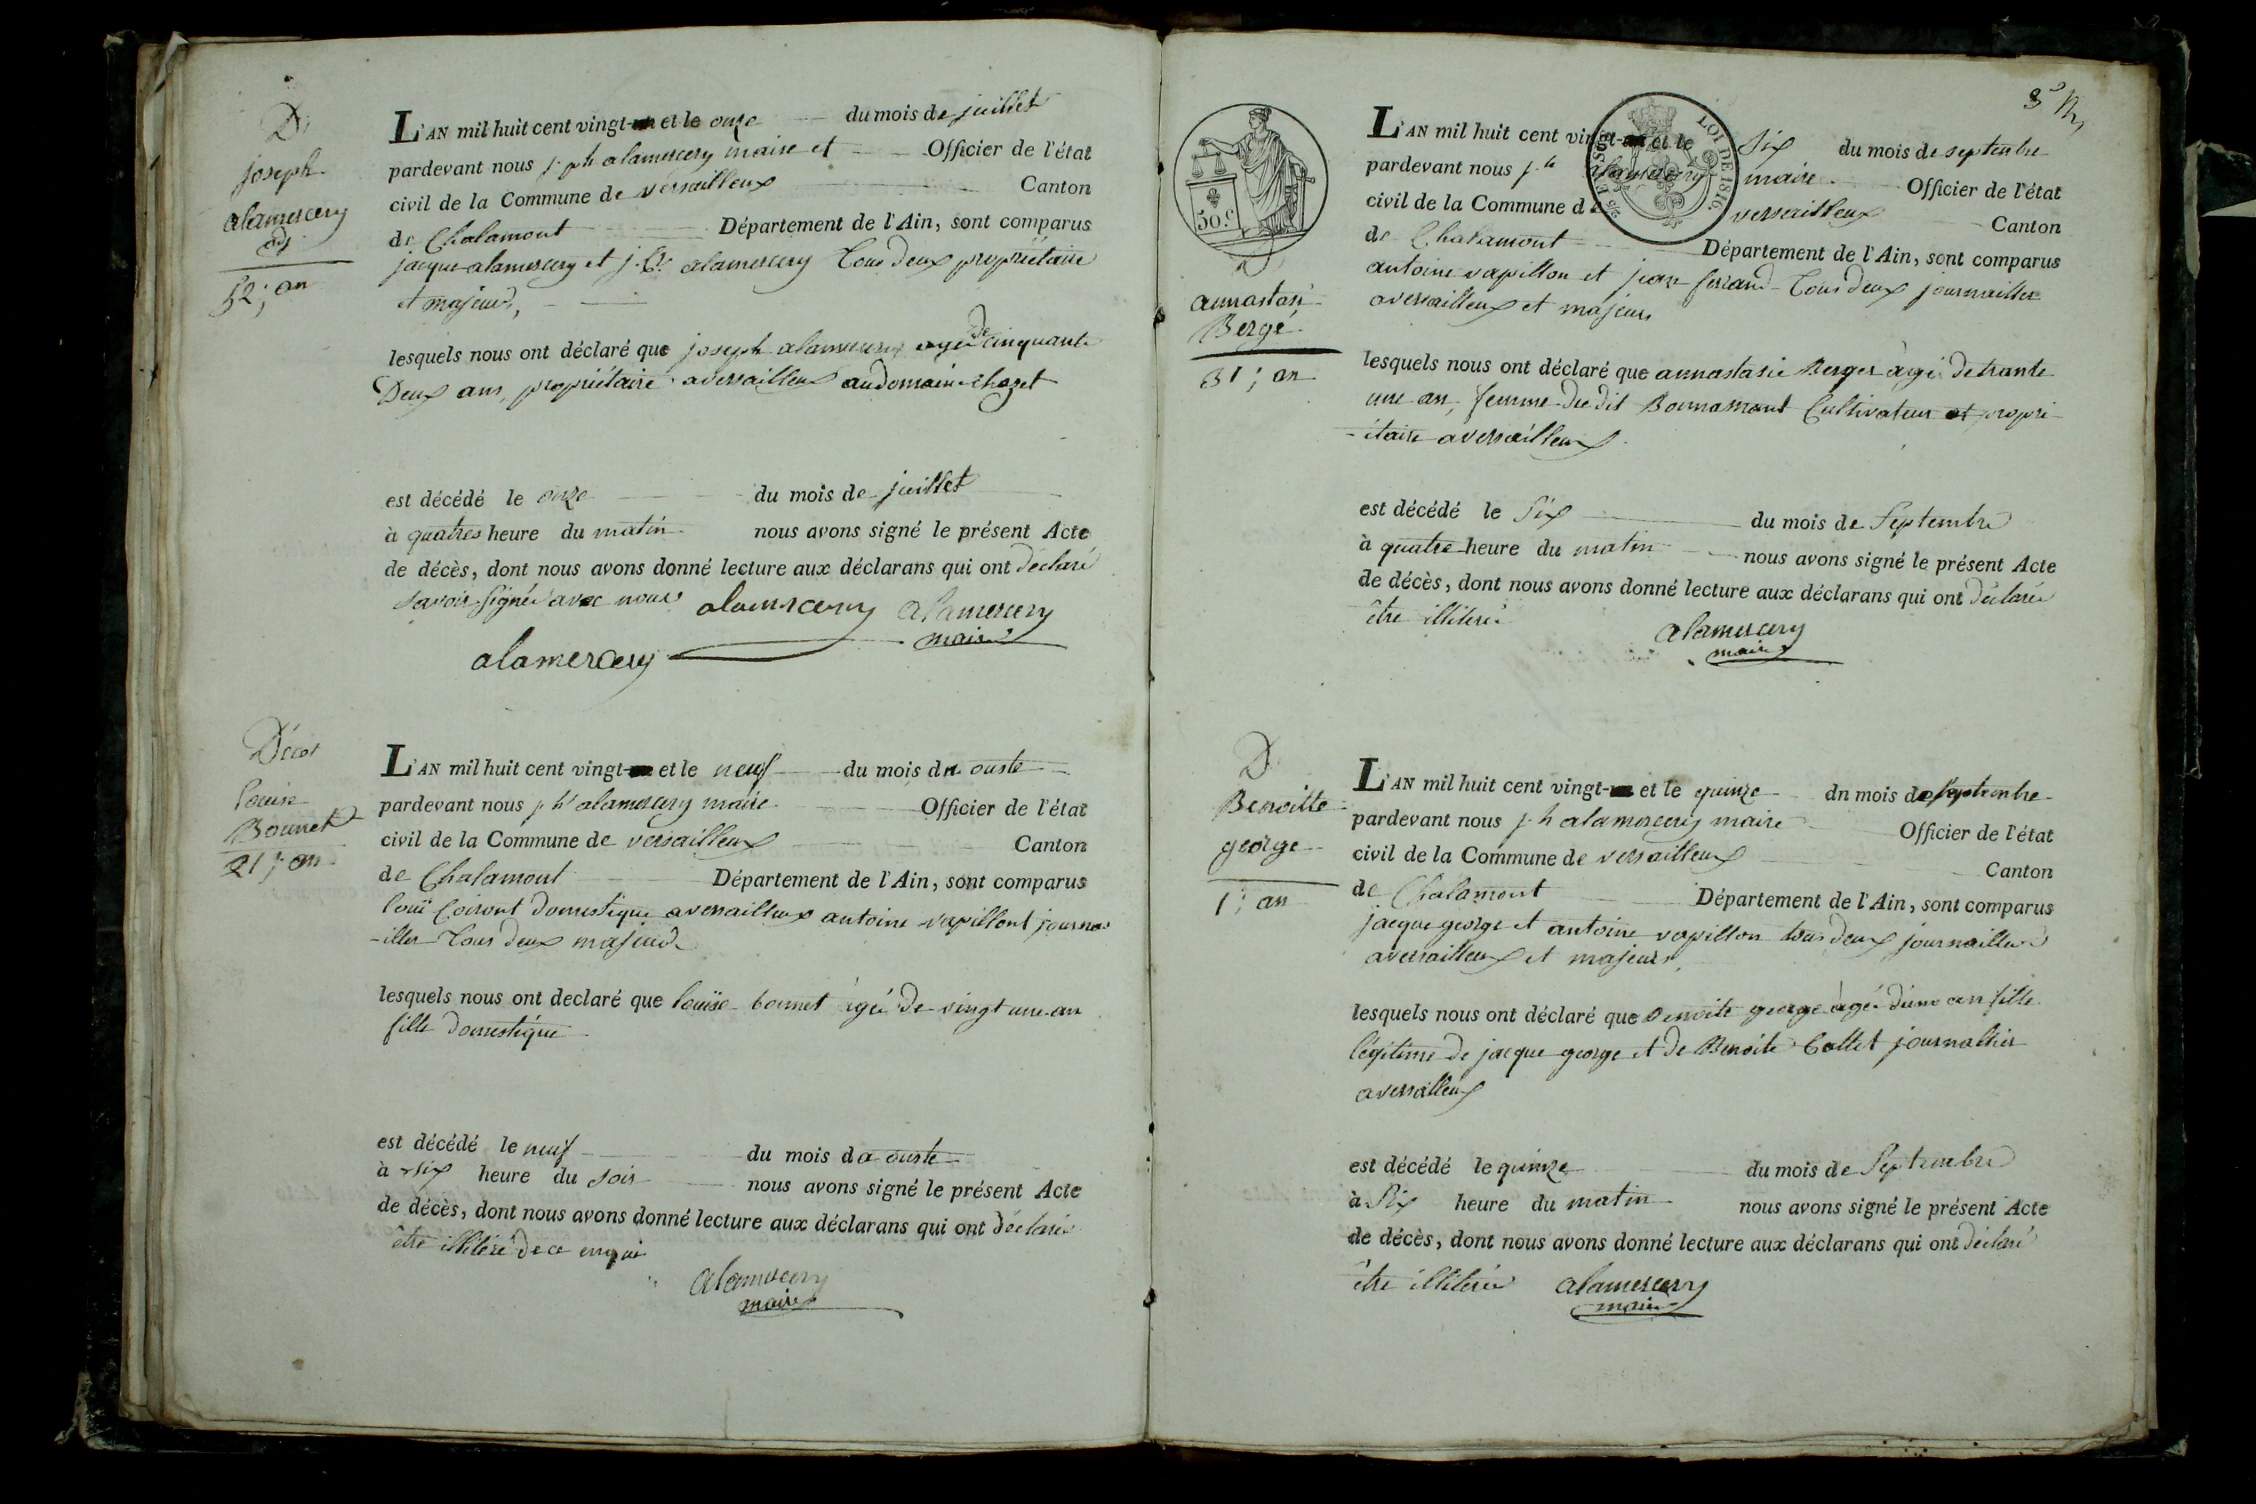 D.
joseph
alamercery
52; an
L'AN mil huit cent vingt- et le onze du mois de juillet
pardevant nous j. ph alamercery maire et Officier de l'état
civil de la Commune de versailleux Canton
de Chalamont Département de l'Ain, sont comparus
jacque alamercery et j. Cl. alamercery Tous deux propriétaire
et majeurs,
lesquels nous ont déclaré que joseph alamercery agé de cinquante
Deux ans, propriétaire a versailleux au domaine chazet
est décédé le onze du mois de juillet
à quatres heure du matin nous avons signé le présent Acte
de décès, dont nous avons donné lecture aux déclarans qui ont déclaré
savoir signé avec nous alamercery alamercery
maire
alamercery
Décès
louise
Bonnet
21; an
L'AN mil huit cent vingt- et le neuf du mois d'a ouste
pardevant nous j. ph alamercery maire Officier de l'état
civil de la Commune de versailleux Canton
de Chalamont Département de l'Ain, sont comparus
louï Coiront domestique a versailleux antoine vapillont journa
-iller Tous deux majeurs
lesquels nous ont declaré que louïse bonnet agé de vingt une an
fille domestique
est décédé le neuf du mois d a ouste
à six heure du soir nous avons signé le présent Acte
de décès, dont nous avons donné lecture aux déclarans qui ont déclaré
être illiteré de ce enquis
alamercery
maire
50 c.
LOI DE 1816.
annastasi
Bergé
31; an
L'AN mil huit cent vingt- et le Six du mois de septembre
pardevant nous j. ph alamercery maire Officier de l'état
civil de la Commune de versailleux Canton
de Chalamont Département de l'Ain, sont comparus
antoine vapillon et jean ferrand Tous deux journailler
a versailleux et majeurs
lesquels nous ont déclaré que annastasie Berger agé de trante
une an, femme du dit Bonnamant Cultivateur et propri
-étaire a versailleux
est décédé le Six du mois de Septembre
à quatre heure du matin nous avons signé le présent Acte
de décès, dont nous avons donné lecture aux déclarans qui ont déclaré
être illiteré
alamercery
maire
D.
Benoitte
george
1; an
L'AN mil huit cent vingt- et le quinze dn mois de septembre
pardevant nous j. h alamercery maire Officier de l'état
civil de la Commune de versailleux Canton
de Chalamont Département de l'Ain, sont comparus
jacque george et antoine vapillon tous deux journailler
a versailleux et majeurs
lesquels nous ont déclaré que Benoite george agé d'une an fille
légitime de jacque george et de Benoite Collet journallier
a versailleux
est décédé le quinze du mois de Septembre
à Six heure du matin nous avons signé le présent Acte
de décès, dont nous avons donné lecture aux déclarans qui ont déclaré
être illiteré alamercery
maire